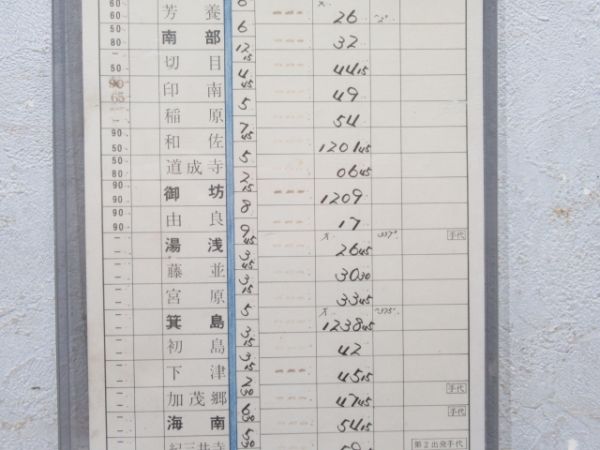 60 芳養 26
60 6
南部 32
12 15
50 切目 4415
4 45
90 65 印南 49
5
稲原 54
7 45
90 和佐 120145
50 5
50 道成寺 0645
90 2 15
90 御坊 1209
90 8
90 由良 17
9 45
湯浅 2645 手代
3 45
藤並 3030
3 15
宮原 3345
5
箕島 123845
3 15
初島 42
3 15
下津 4515
2 30
加茂郷 4745 手代
6 30
海南 5415 手代
5 30
紀三井寺 第2出発手代